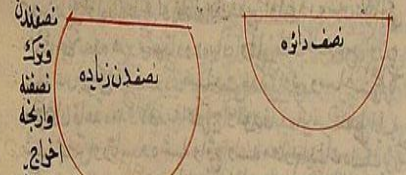 نصف دائره
نصفدن زیاده
نصفندن
وترك
نصفنه
وارنجه
اخراج